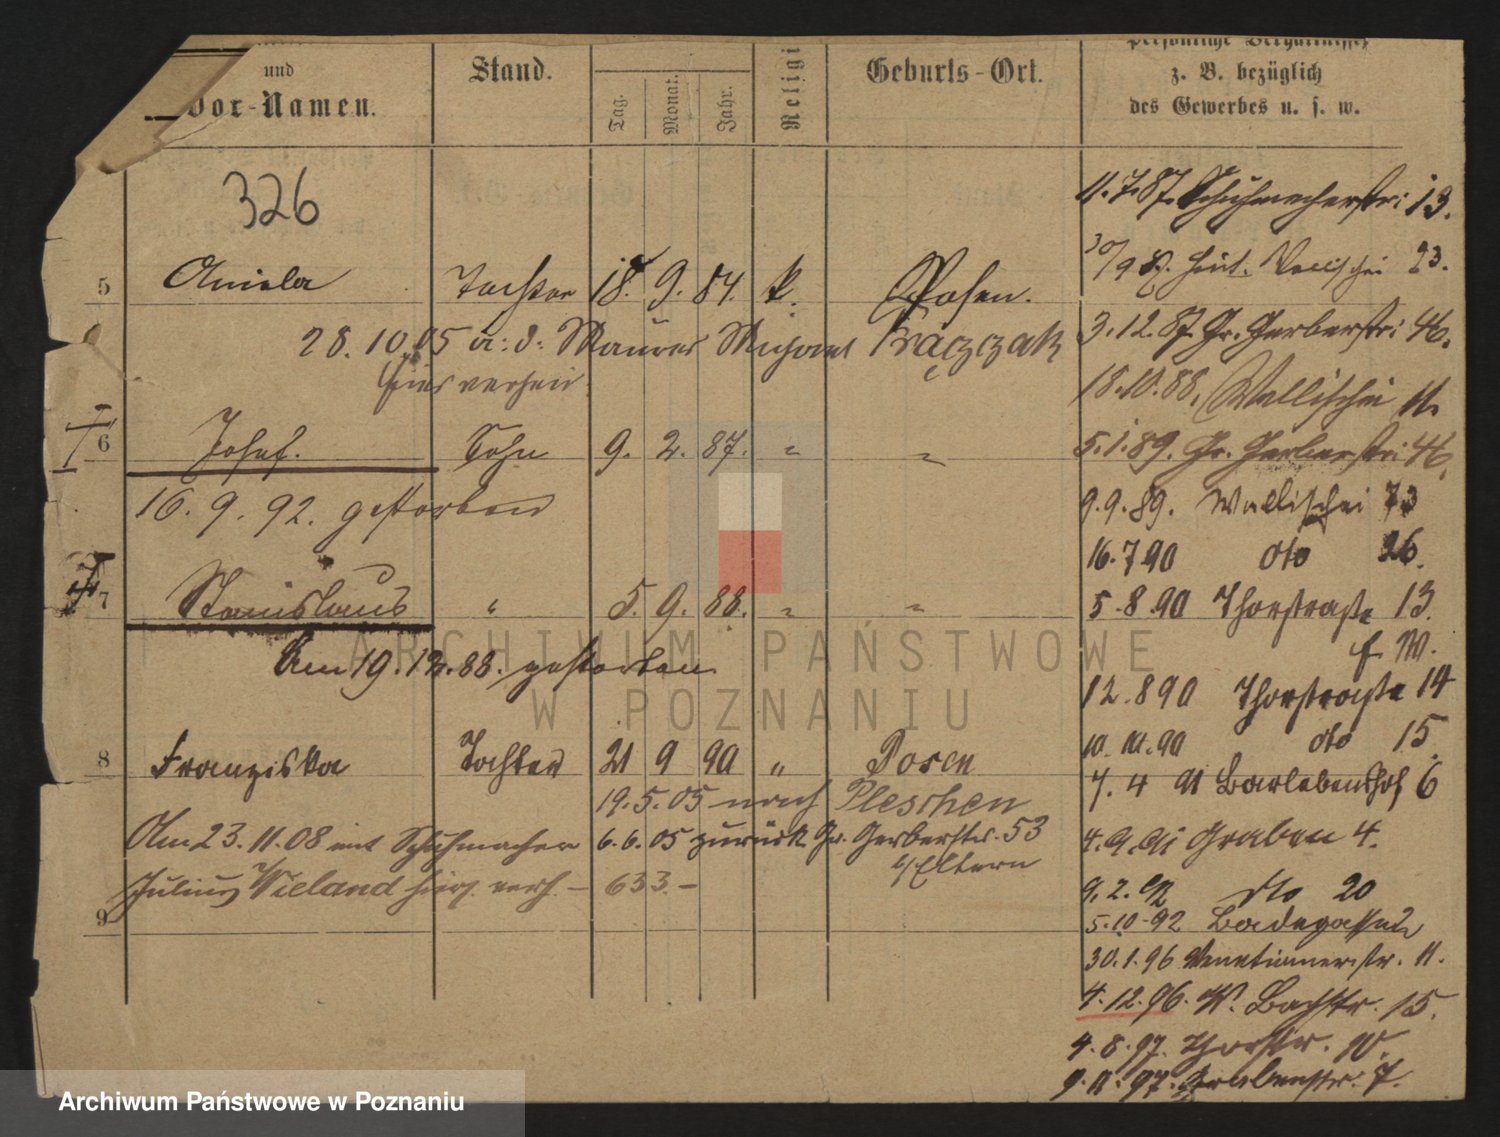 und
Vor-Namen.
Stand.
Tag.
Monat.
Jahr.
Religi
Geburts-Ort.
persönliche Verhältnisse
z. B. bezüglich
des Gewerbes u. s. w.
326
5 Aniela Tochter 18. 9. 84. k. Posen.
28. 10. 05 a: d: Maurer Frączzak
hier verheir.
6 Josef. Sohn 9. 2. 87. " "
16. 9. 92. gestorben
7 Stanislaus " 5. 9. 88. " "
Am 19. 12. 88. gestorben
8 Franziska Tochter 21 9 90 " Posen
19. 5. 05 nach Pleschen
Am 23. 11. 08 mit Schuhmacher 6. 6. 05 zurück Gr. Gerberstr. 53
b/Eltern
Julius Wieland hier verh. – 633. –
9
11. 7. 87. Schuhmacherstr: 13.
30/9 87. Wallischei 23.
3. 12. 87. Gr. Gerberstr: 46.
18. 10. 88. Wallischei 11.
5. 1. 89. Gr. Gerberstr: 46.
9. 9. 89. Wallischei 73
16. 7 90 dto 26.
5. 8. 90 Thorstraße 13.
f. W.
12. 8 90 Thorstraße 14
10. 10. 90 dto 15.
7. 4 91 Barlebenshof 6
4. 9. 91 Graben 4.
9. 2. 92 dto 20
5. 10. 92 Badegasse 2
30. 1. 96 Venetianerstr. 11.
4. 12. 96. W. Bachstr. 15.
4. 8. 97. Thorstr. 10.
9. 11. 97. Grabenstr. 7.
ARCHIWUM PAŃSTWOWE
W POZNANIU
Archiwum Państwowe w Poznaniu